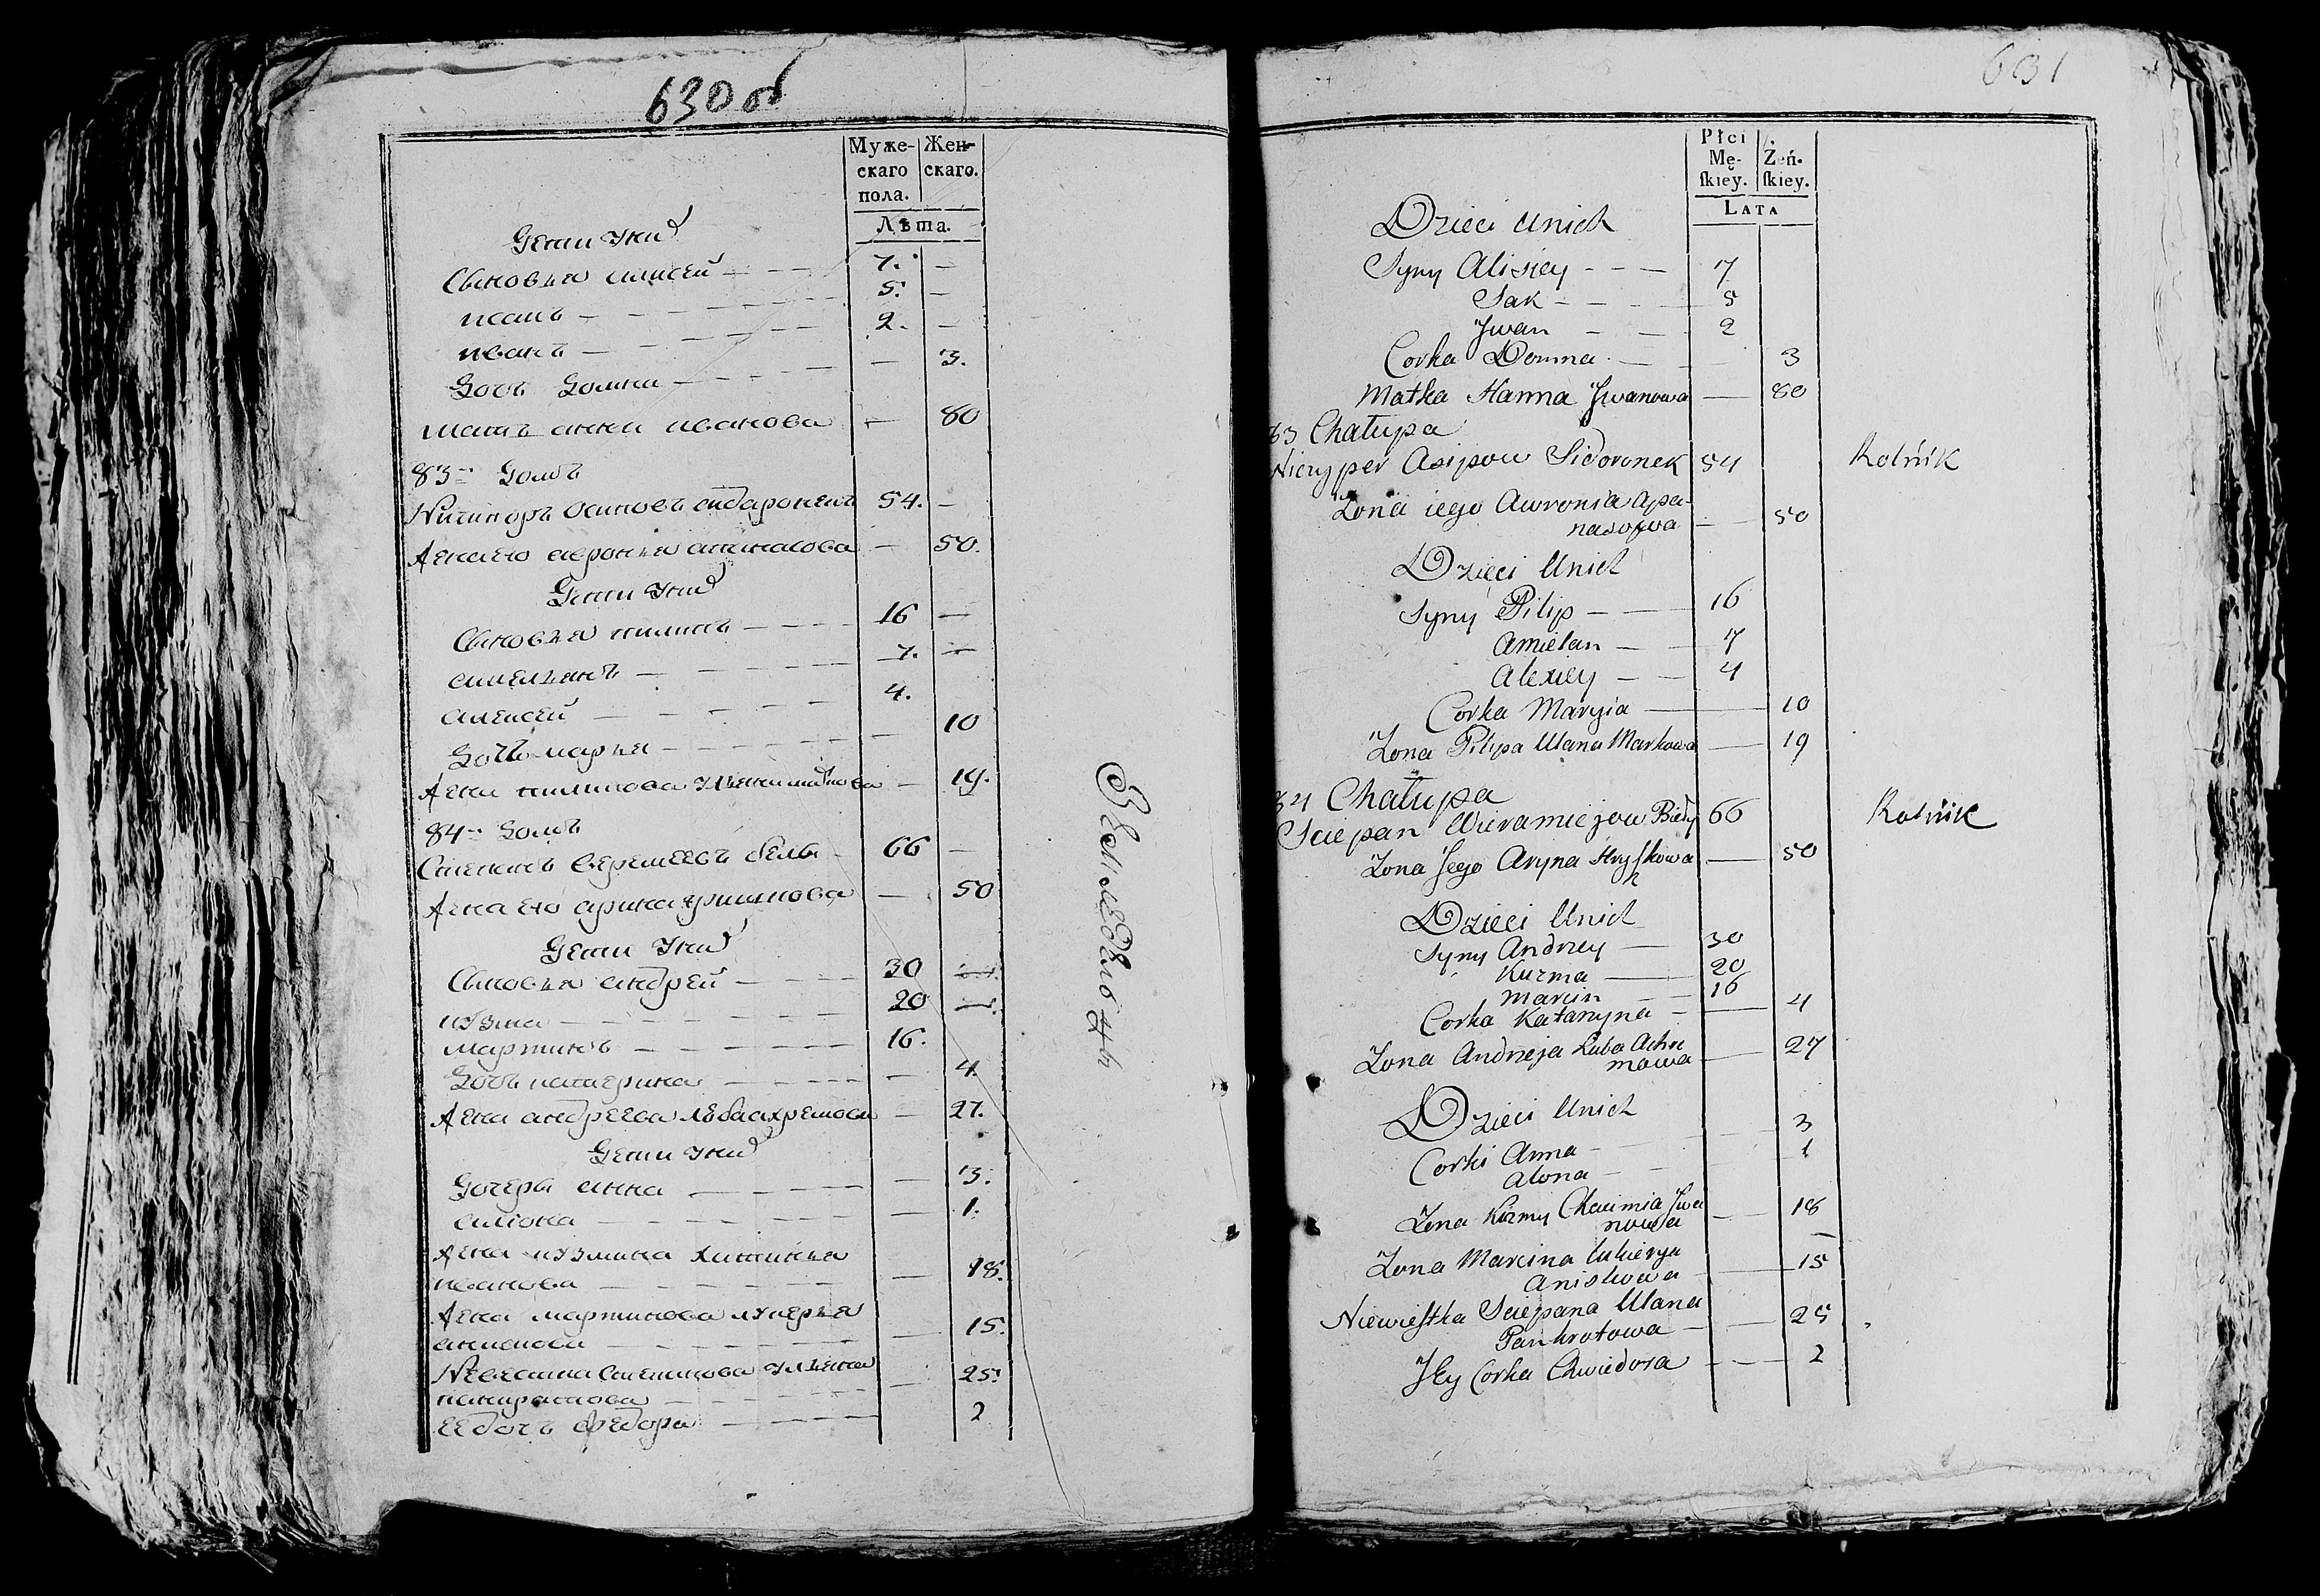 630 об
Муже-
скаго
пола.
Жен-
скаго.
Лѣта.
Дети У них
Сыновья алисей - - - 7. -
исакъ - - - - 5. -
иванъ - - - 2. -
Дочь Домна - - - - 3.
мать анна иванова - 80
83- Домъ
Ничипоръ осиповъ сидаронекъ 54. -
Жена его авронья апанасова - 50.
Дети У них
Сыновья пилипъ - - - - 16 -
емельянъ - - - - 7. -
алексей - - - - 4.
Дочь марья - - - - - 10
Жена пилипова Ульяна маркова - 19.
84- Домъ
Степанъ Веремеевъ белы - 66 -
Жена его арина грышкова - 50
Дети У них
Сыновья андрей - - - - 30
кузма - - - - - 20
мартинъ - - - - - 16.
Дочь катерина - - - - - 4.
Жена андреева люба ахремова - 27.
Дети У них
Дочеры анна - - - - - 3.
алiона - - - - - 1.
Жена кузмина
иванова - - - - - 18.
Жена мартинова лукерья
- - - - - 15.
Невестка Степанова Ульяна
панкратова - - - - 25.
Ее дочь федора - - - - 2
631
Płci
Mę-
ſkiey.
Żeń-
ſkiey.
LATA
Dzieci Unich
Syny Alisiey - - - 7
Sak - - - - 5
Jwan - - - 2
Corka Domna - - 3
Matka Hanna Jwanowa - 80
83 Chałupa
Niczyper Asipow Sidoronek 54 Rolnik
Zona iego Awronia Apa-
nasowa - 50
Dzieci Unich
Syny Pilip - - - 16
Amielan - - 7
Alexiey - - 4
Corka Maryia - 10
Zona Pilipa Ulana Markowa - 19
84 Chałupa
Sciepan Wieramiejow Biely 66 Rolnik
Zona Jego Aryna Hryſkowa - 50
Dzieci Unich
Syny Andrzey - 30
Kuzma - 20
Marcin - - 16
Corka Kataryna - - 4
Zona Andrzeja Luba Achre
mowa - 27
Dzieci Unich
Corki Anna - - 3
Alona - - 1
Zona Kuzmy Jwa
nowa - 18
Zona Marcina Lukierya
Aniskowa - 15
Niewieſtka Sciepana Ulana
Pankratowa - - 25
Jey Corka Chwiedora - - 2